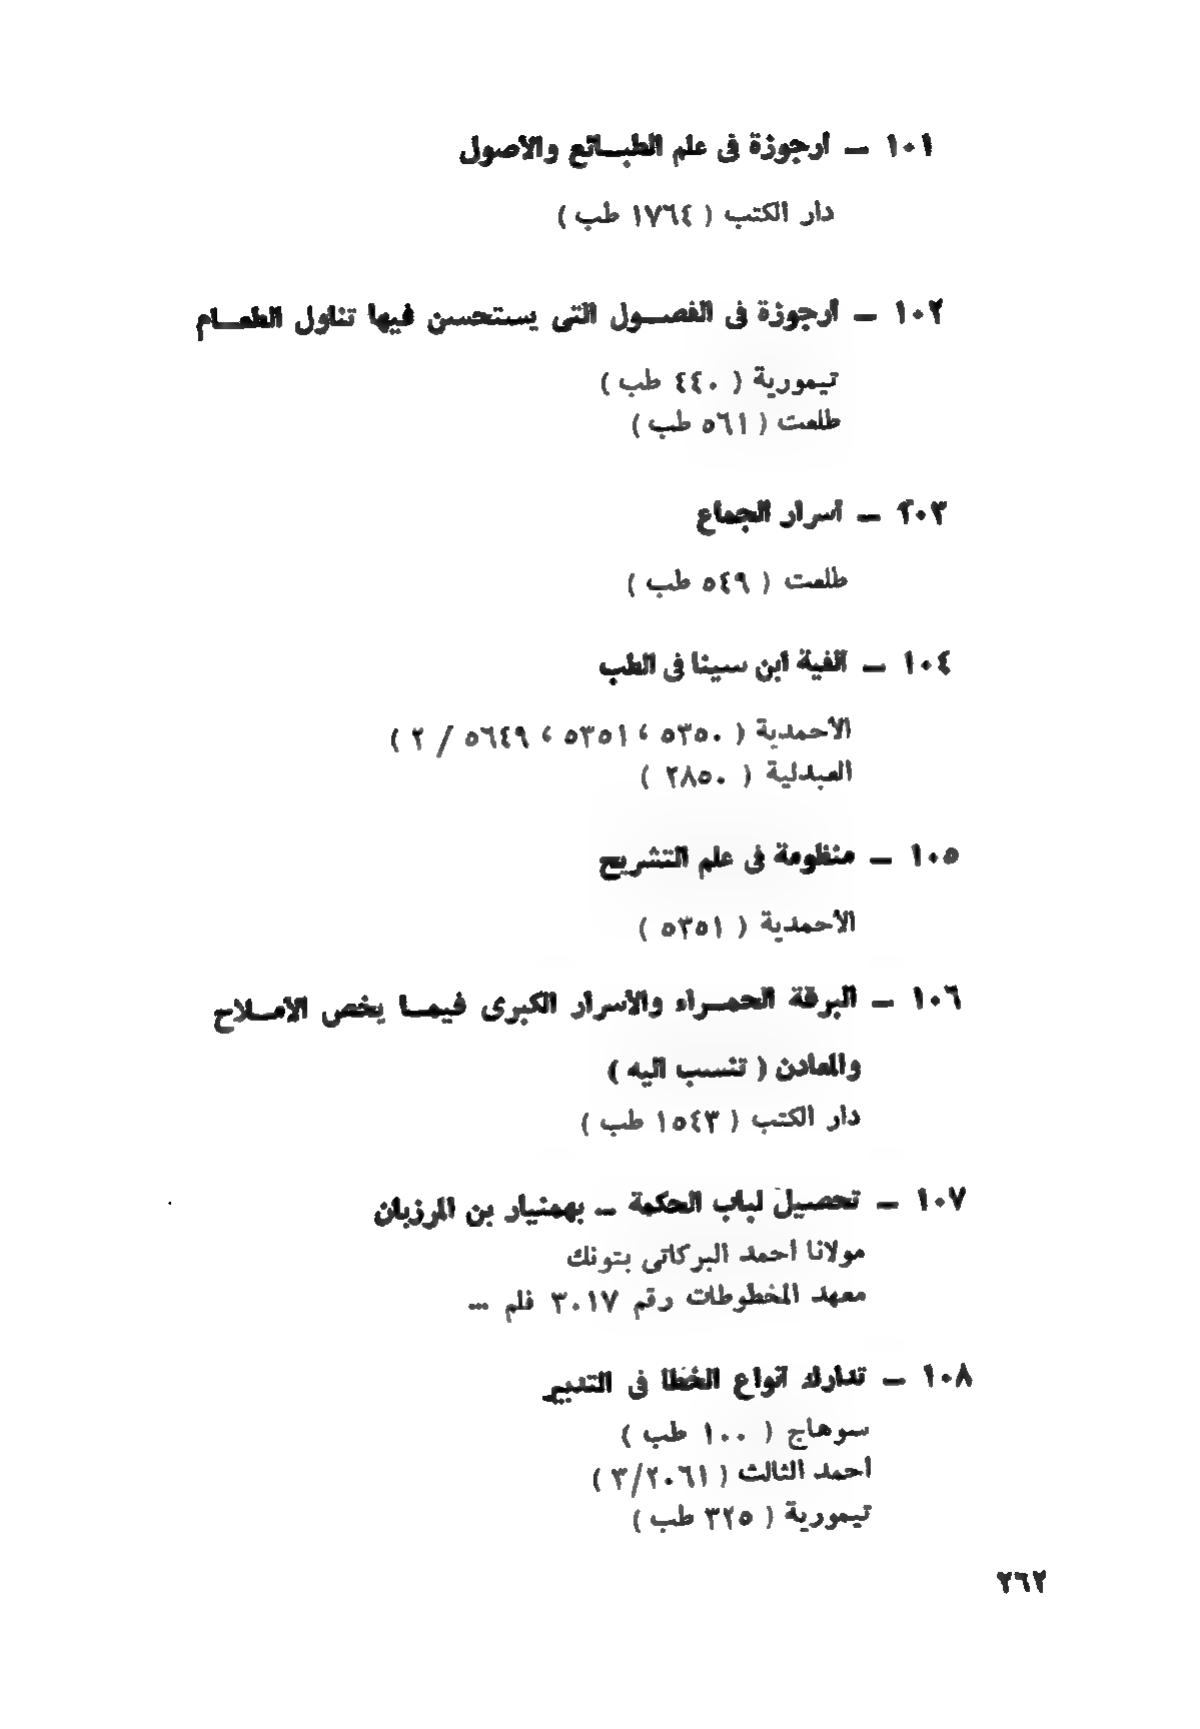 ١٠١ — أرجوزة فى علم الطبـــائع والأصول
دار الكتب ( ١٧٦٤ طب )
١٠٢ — أرجوزة فى الفصـــول التى يستحسن فيها تناول الطعـــام
تيمورية ( ٤٤٠ طب )
طلعت ( ٥٦١ طب )
٢٠٣ — أسرار الجماع
طلعت ( ٥٤٩ طب )
١٠٤ — ألفية ابن سينا فى الطب
الأحمدية ( ٥٣٥٠ ، ٥٣٥١ ، ٥٦٤٩ / ٢ )
العبدلية ( ٢٨٥٠ )
١٠٥ — منظومة فى علم التشريح
الأحمدية ( ٥٣٥١ )
١٠٦ — البرقة الحمـــراء والأسرار الكبرى فيمـــا يخص الأمـــلاح
والمعادن ( تنسب اليه )
دار الكتب ( ١٥٤٣ طب )
١٠٧ — تحصيل لباب الحكمة — بهمنيار بن المرزبان
مولانا أحمد البركاتى بتونك
معهد المخطوطات رقم ٣٠١٧ فلم ...
١٠٨ — تدارك أنواع الخطأ فى التدبير
سوهاج ( ١٠٠ طب )
أحمد الثالث ( ٣/٢٠٦١ )
تيمورية ( ٣٢٥ طب )
٢٦٢